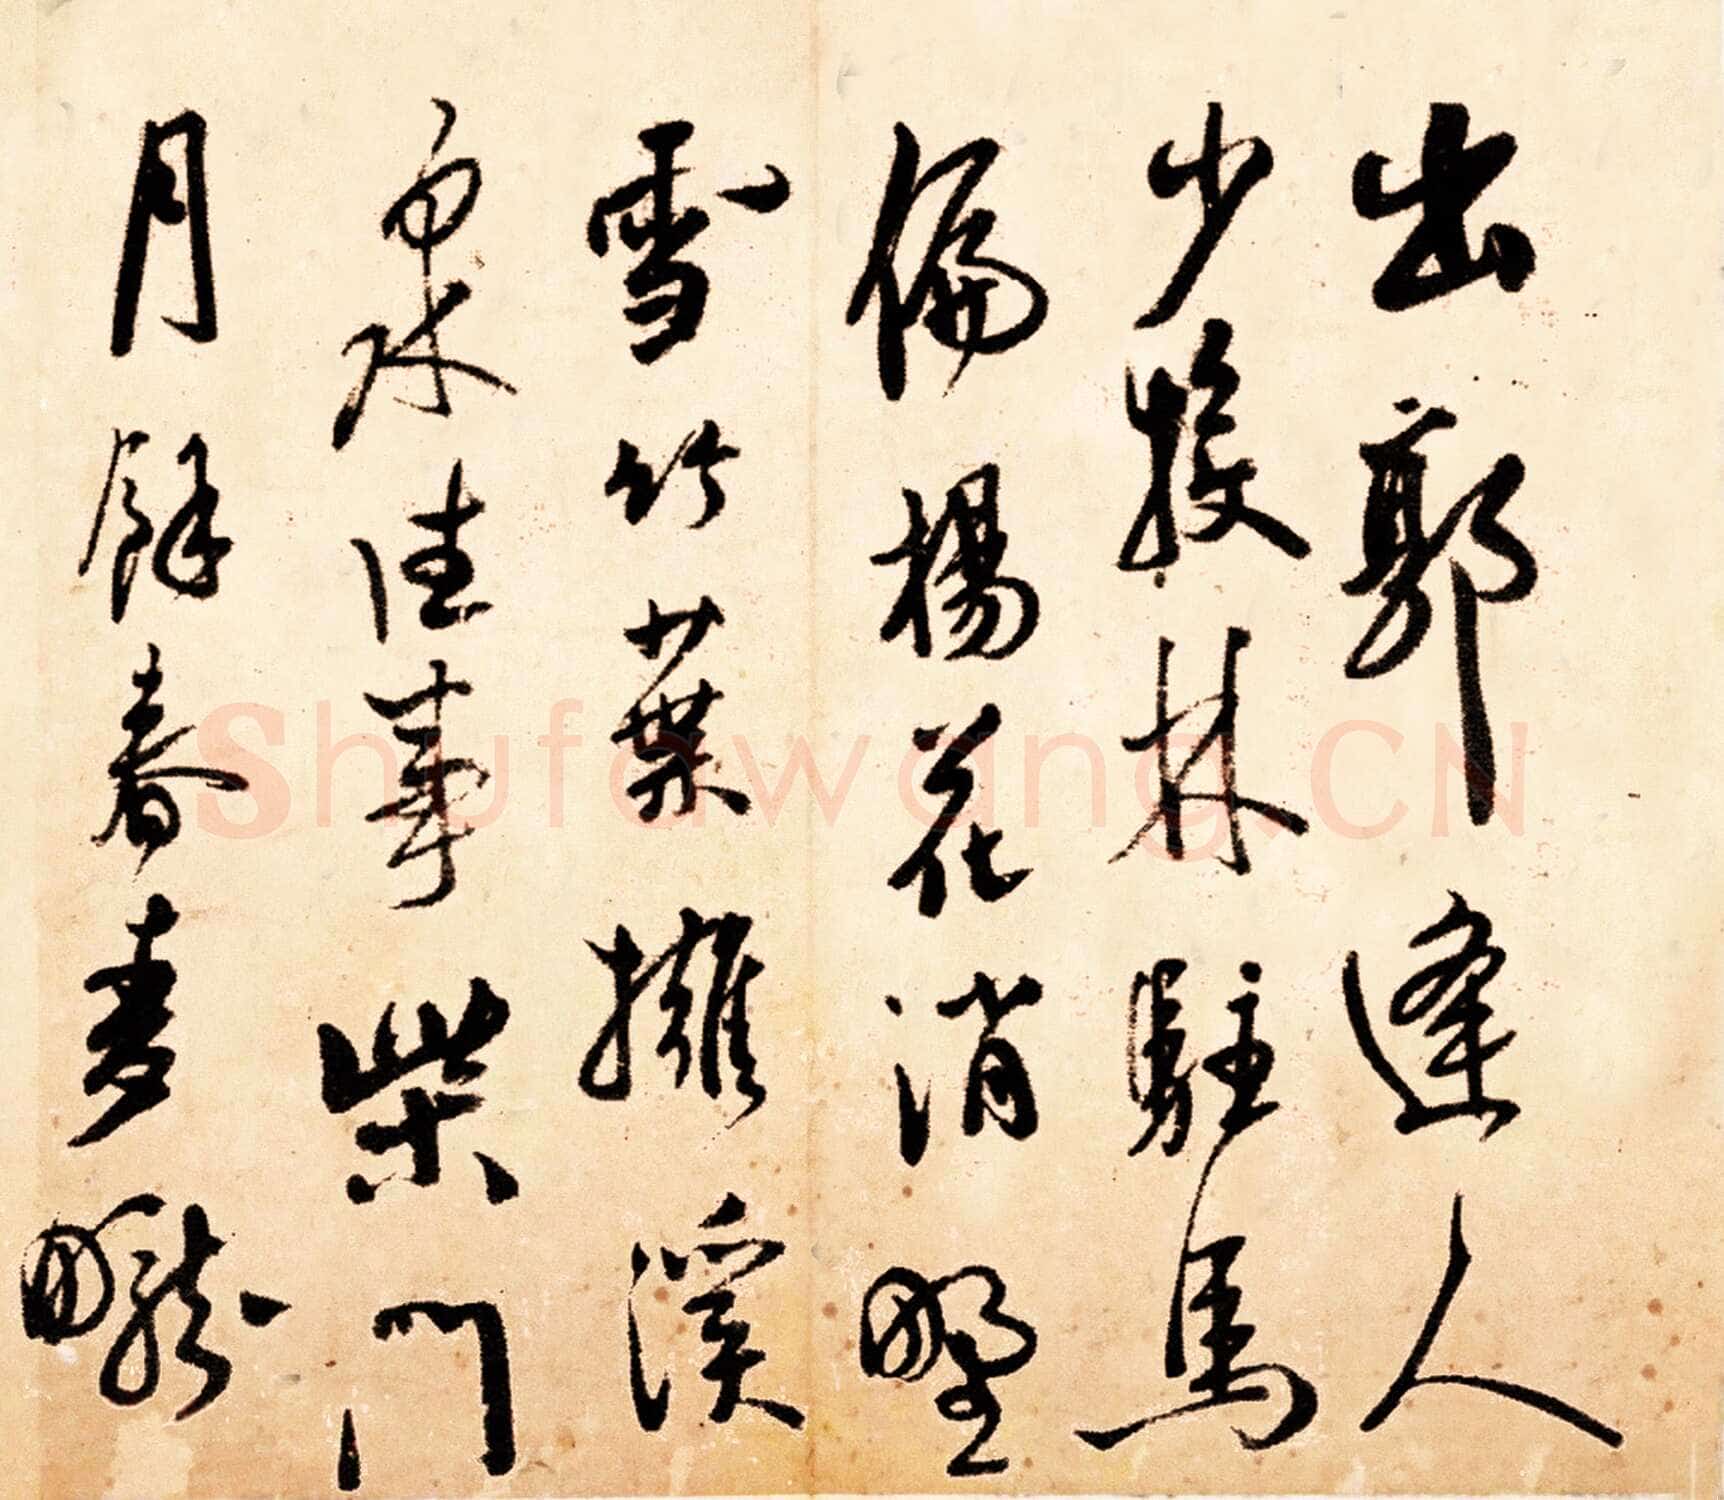 出郭逢人
少投林駐馬
偏楊花消野
雪竹葉擁溪
泉水佳事柴門
月餘春麥隴
Shufawang.CN